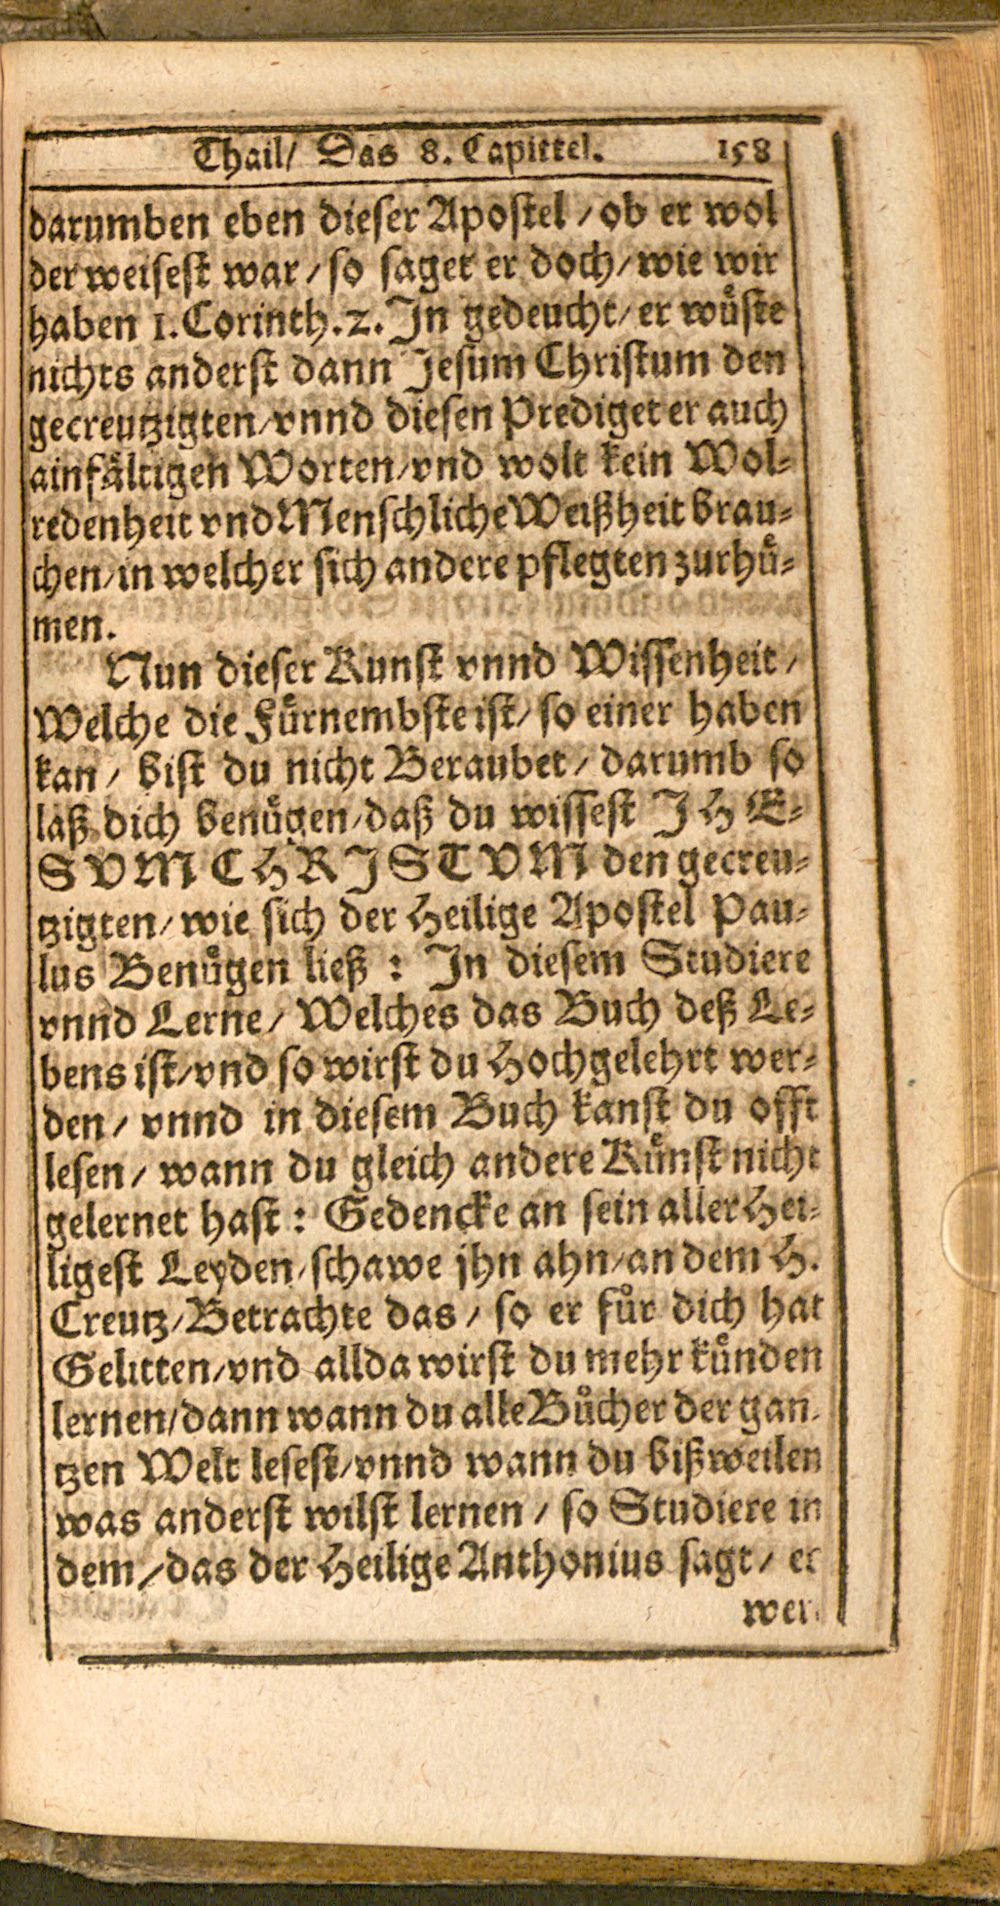 Thail/ Das 8. Capittel. 158
darumben eben dieser Apostel / ob er wol
der weisest war / so saget er doch / wie wir
haben 1. Corinth. 2. Jn gedeucht / er wuͤste
nichts anderst dann Jesum Christum den
gecreutzigten / vnnd diesen Prediget er auch
ainfaͤltigen Worten / vnd wolt kein Wol⸗
redenheit vnd Menschliche Weißheit brau⸗
chen / in welcher sich andere pflegten zurhuͤ⸗
men.
Nun dieser Kunst vnnd Wissenheit /
Welche die Fuͤrnembste ist / so einer haben
kan / bist du nicht Beraubet / darumb so
laß dich benuͤgen / daß du wissest JHE⸗
SVM CHRJSTVM den gecreu⸗
tzigten / wie sich der Heilige Apostel Pau⸗
lus Benuͤgen ließ : Jn diesem Studiere
vnnd Lerne / Welches das Buch deß Le⸗
bens ist / vnd so wirst du Hochgelehrt wer⸗
den / vnnd in diesem Buch kanst du offt
lesen / wann du gleich andere Kuͤnst nicht
gelernet hast : Gedencke an sein aller Hei⸗
ligest Leyden / schawe jhn ahn / an dem H.
Creutz / Betrachte das / so er fuͤr dich hat
Gelitten / vnd allda wirst du mehr kuͤnden
lernen / dann wann du alle Buͤcher der gan⸗
tzen Welt lesest / vnnd wann du bißweilen
was anderst wilst lernen / so Studiere in
dem / das der Heilige Anthonius sagt / er
wer⸗